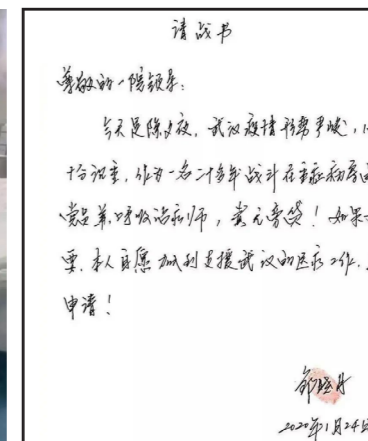 请战书
尊敬的一院领导：
今天是除夕夜，武汉疫情形势严峻，
十分沉重，作为一名二十多年战斗在重症病房
党员兼呼吸治疗师，责无旁贷！如果
要，本人自愿加到支援武汉的医疗工作，
申请！
邹晓月
2020年1月24日